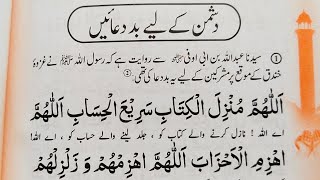 دشمن کے لیے بددعائیں
① سیدنا عبداللہ بن ابی اوفیٰ رضی اللہ عنہ سے روایت ہے کہ رسول اللہ ﷺ نے غزوۂ
خندق کے موقع پر مشرکین کے لیے یہ بددعا کی تھی ②
اَللّٰهُمَّ مُنْزِلَ الْكِتَابِ سَرِيْعَ الْحِسَابِ اَللّٰهُمَّ
اے اللہ! نازل کرنے والے کتاب کو ، جلد لینے والے حساب کو ، اے اللہ!
اهْزِمِ الْاَحْزَابَ اَللّٰهُمَّ اهْزِمْهُمْ وَ زَلْزِلْهُمْ